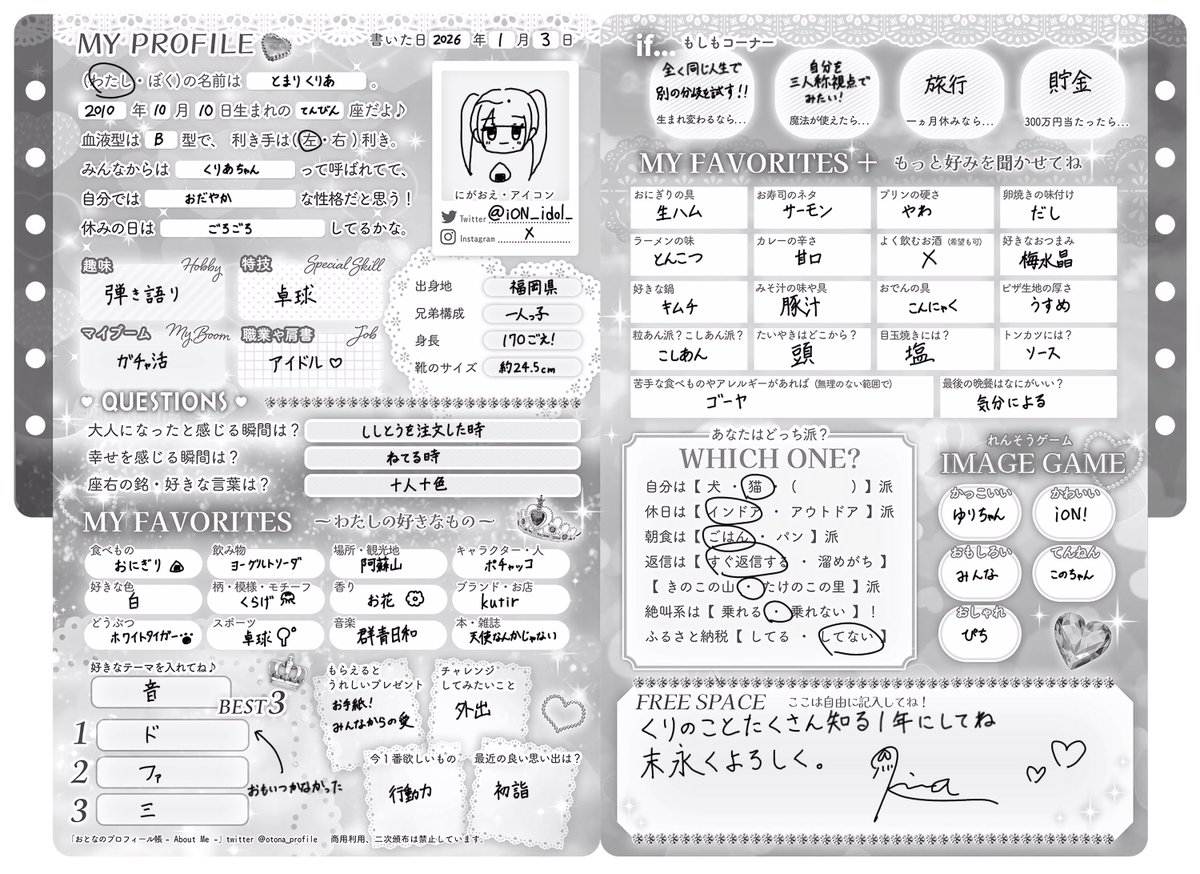 MY PROFILE
書いた日 2026 年 1 月 3 日
(わたし・ぼく)の名前は とまりくりあ 。
2010 年 10 月 10 日生まれの てんびん 座だよ♪
血液型は B 型で、 利き手は(左・右)利き。
みんなからは くりあちゃん って呼ばれてて、
自分では おだやか な性格だと思う!
休みの日は ごろごろ してるかな。
にがおえ・アイコン
Twitter @iON_idol_
Instagram X
趣味 Hobby
弾き語り
特技 Special Skill
卓球
マイブーム My Boom
ガチャ活
職業や肩書 Job
アイドル♡
出身地 福岡県
兄弟構成 一人っ子
身長 170ごえ!
靴のサイズ 約24.5cm
♥ QUESTIONS ♥
大人になったと感じる瞬間は? ししとうを注文した時
幸せを感じる瞬間は? ねてる時
座右の銘・好きな言葉は? 十人十色
MY FAVORITES ～わたしの好きなもの～
食べもの おにぎり
飲み物 ヨーグルトソーダ
場所・観光地 阿蘇山
キャラクター・人 ポチャッコ
好きな色 白
柄・模様・モチーフ くらげ
香り お花
ブランド・お店 kutir
どうぶつ ホワイトタイガー
スポーツ 卓球
音楽 群青日和
本・雑誌 天使なんかじゃない
好きなテーマを入れてね♪
音
BEST 3
1 ド
2 ファ
3 三
おもいつかなかった
もらえると
うれしいプレゼント
お手紙!
みんなからの愛
チャレンジ
してみたいこと
外出
今1番欲しいもの
行動力
最近の良い思い出は?
初詣
「おとなのプロフィール帳 - About Me -」twitter @otona_profile 商用利用、二次頒布は禁止しています。
if... もしもコーナー
全く同じ人生で
別の分岐を試す!!
生まれ変わるなら...
自分を
三人称視点で
みたい!
魔法が使えたら...
旅行
一ヵ月休みなら...
貯金
300万円当たったら...
MY FAVORITES + もっと好みを聞かせてね
おにぎりの具 生ハム
お寿司のネタ サーモン
プリンの硬さ やわ
卵焼きの味付け だし
ラーメンの味 とんこつ
カレーの辛さ 甘口
よく飲むお酒 (希望も可) X
好きなおつまみ 梅水晶
好きな鍋 キムチ
みそ汁の味や具 豚汁
おでんの具 こんにゃく
ピザ生地の厚さ うすめ
粒あん派?こしあん派? こしあん
たいやきはどこから? 頭
目玉焼きには? 塩
トンカツには? ソース
苦手な食べものやアレルギーがあれば (無理のない範囲で) ゴーヤ
最後の晩餐はなにがいい? 気分による
あなたはどっち派?
WHICH ONE?
自分は【 犬 ・ 猫 ・ ( ) 】派
休日は【 インドア ・ アウトドア 】派
朝食は【 ごはん ・ パン 】派
返信は【 すぐ返信する ・ 溜めがち 】
【 きのこの山 ・ たけのこの里 】派
絶叫系は【 乗れる ・ 乗れない 】!
ふるさと納税【 してる ・ してない 】
れんそうゲーム
IMAGE GAME
かっこいい ゆりちゃん
かわいい iON!
おもしろい みんな
てんねん このちゃん
おしゃれ ぴち
FREE SPACE ここは自由に記入してね!
くりのことたくさん知る1年にしてね
末永くよろしく。